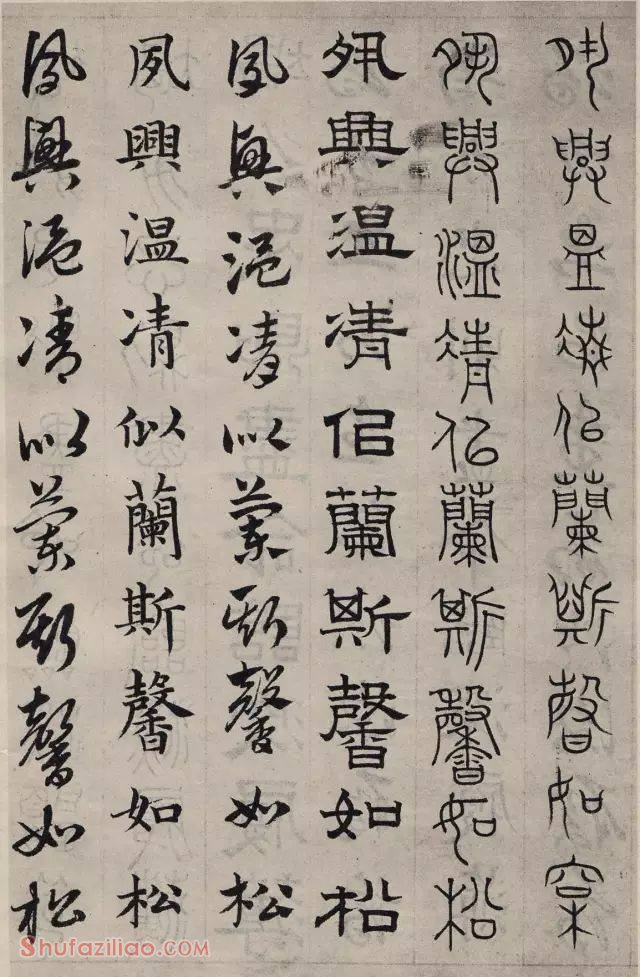 夙興温凊似蘭斯馨如松
夙興温凊似蘭斯馨如松
夙興温凊似蘭斯馨如松
夙興温凊似蘭斯馨如松
夙興温凊似蘭斯馨如松
夙興温凊似蘭斯馨如松
Shufaziliao.com